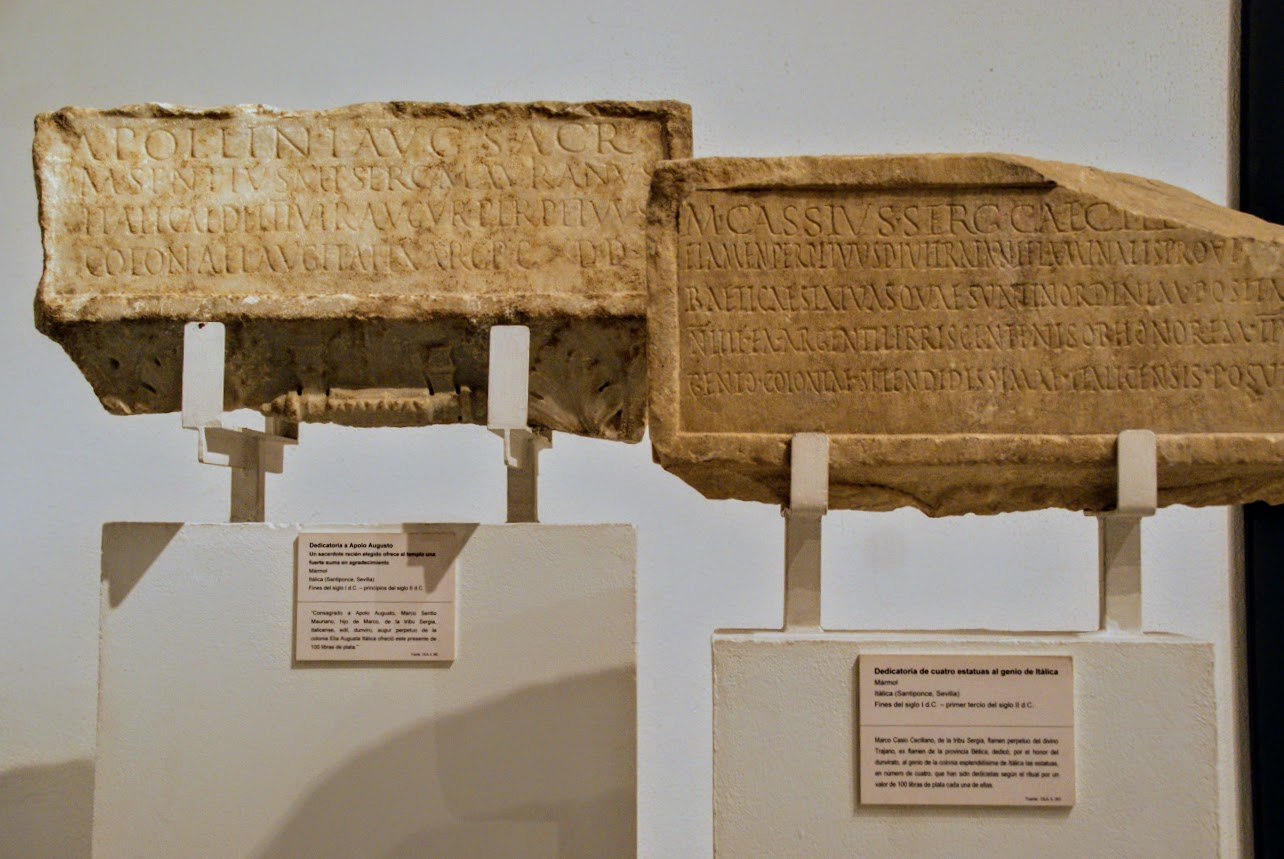 APOLLINI·AVG·SACR
M·SENTIVS·M·F·SERG·MAVRIANVS
ITALICAE D II VIR AVGVR PERPETVVS
COLONIAE AEL AVG ITALIX ARG P C D D
M·CASSIVS·SERG·CAECILI
FLAMEN PERPETVVS DIVI TRAIANI FLAMINALIS PROV
BAETICAE STATVAS QVAE SVNT IN ORDINEM POSITA
N IIII EX ARGENTI LIBRIS CENTENIS OB HONOREM II
GENIO·COLONIAE SPLENDIDISSIMAE ITALICENSIS POSV
Dedicatoria a Apolo Augusto
Un sacerdote recién elegido ofrece al templo una
fuerte suma en agradecimiento
Mármol
Itálica (Santiponce, Sevilla)
Fines del siglo I d.C. – principios del siglo II d.C.
"Consagrado a Apolo Augusto, Marco Sentio
Mauriano, hijo de Marco, de la tribu Sergia,
italicense, edil, dunviro, augur perpetuo de la
colonia Elia Augusta Itálica ofreció este presente de
100 libras de plata."
Dedicatoria de cuatro estatuas al genio de Itálica
Mármol
Itálica (Santiponce, Sevilla)
Fines del siglo I d.C. – primer tercio del siglo II d.C.
Marco Casio Ceciliano, de la tribu Sergia, flamen perpetuo del divino
Trajano, ex flamen de la provincia Bética, dedicó, por el honor del
dunvirato, al genio de la colonia esplendidísima de Itálica las estatuas,
en número de cuatro, que han sido dedicadas según el ritual por un
valor de 100 libras de plata cada una de ellas.